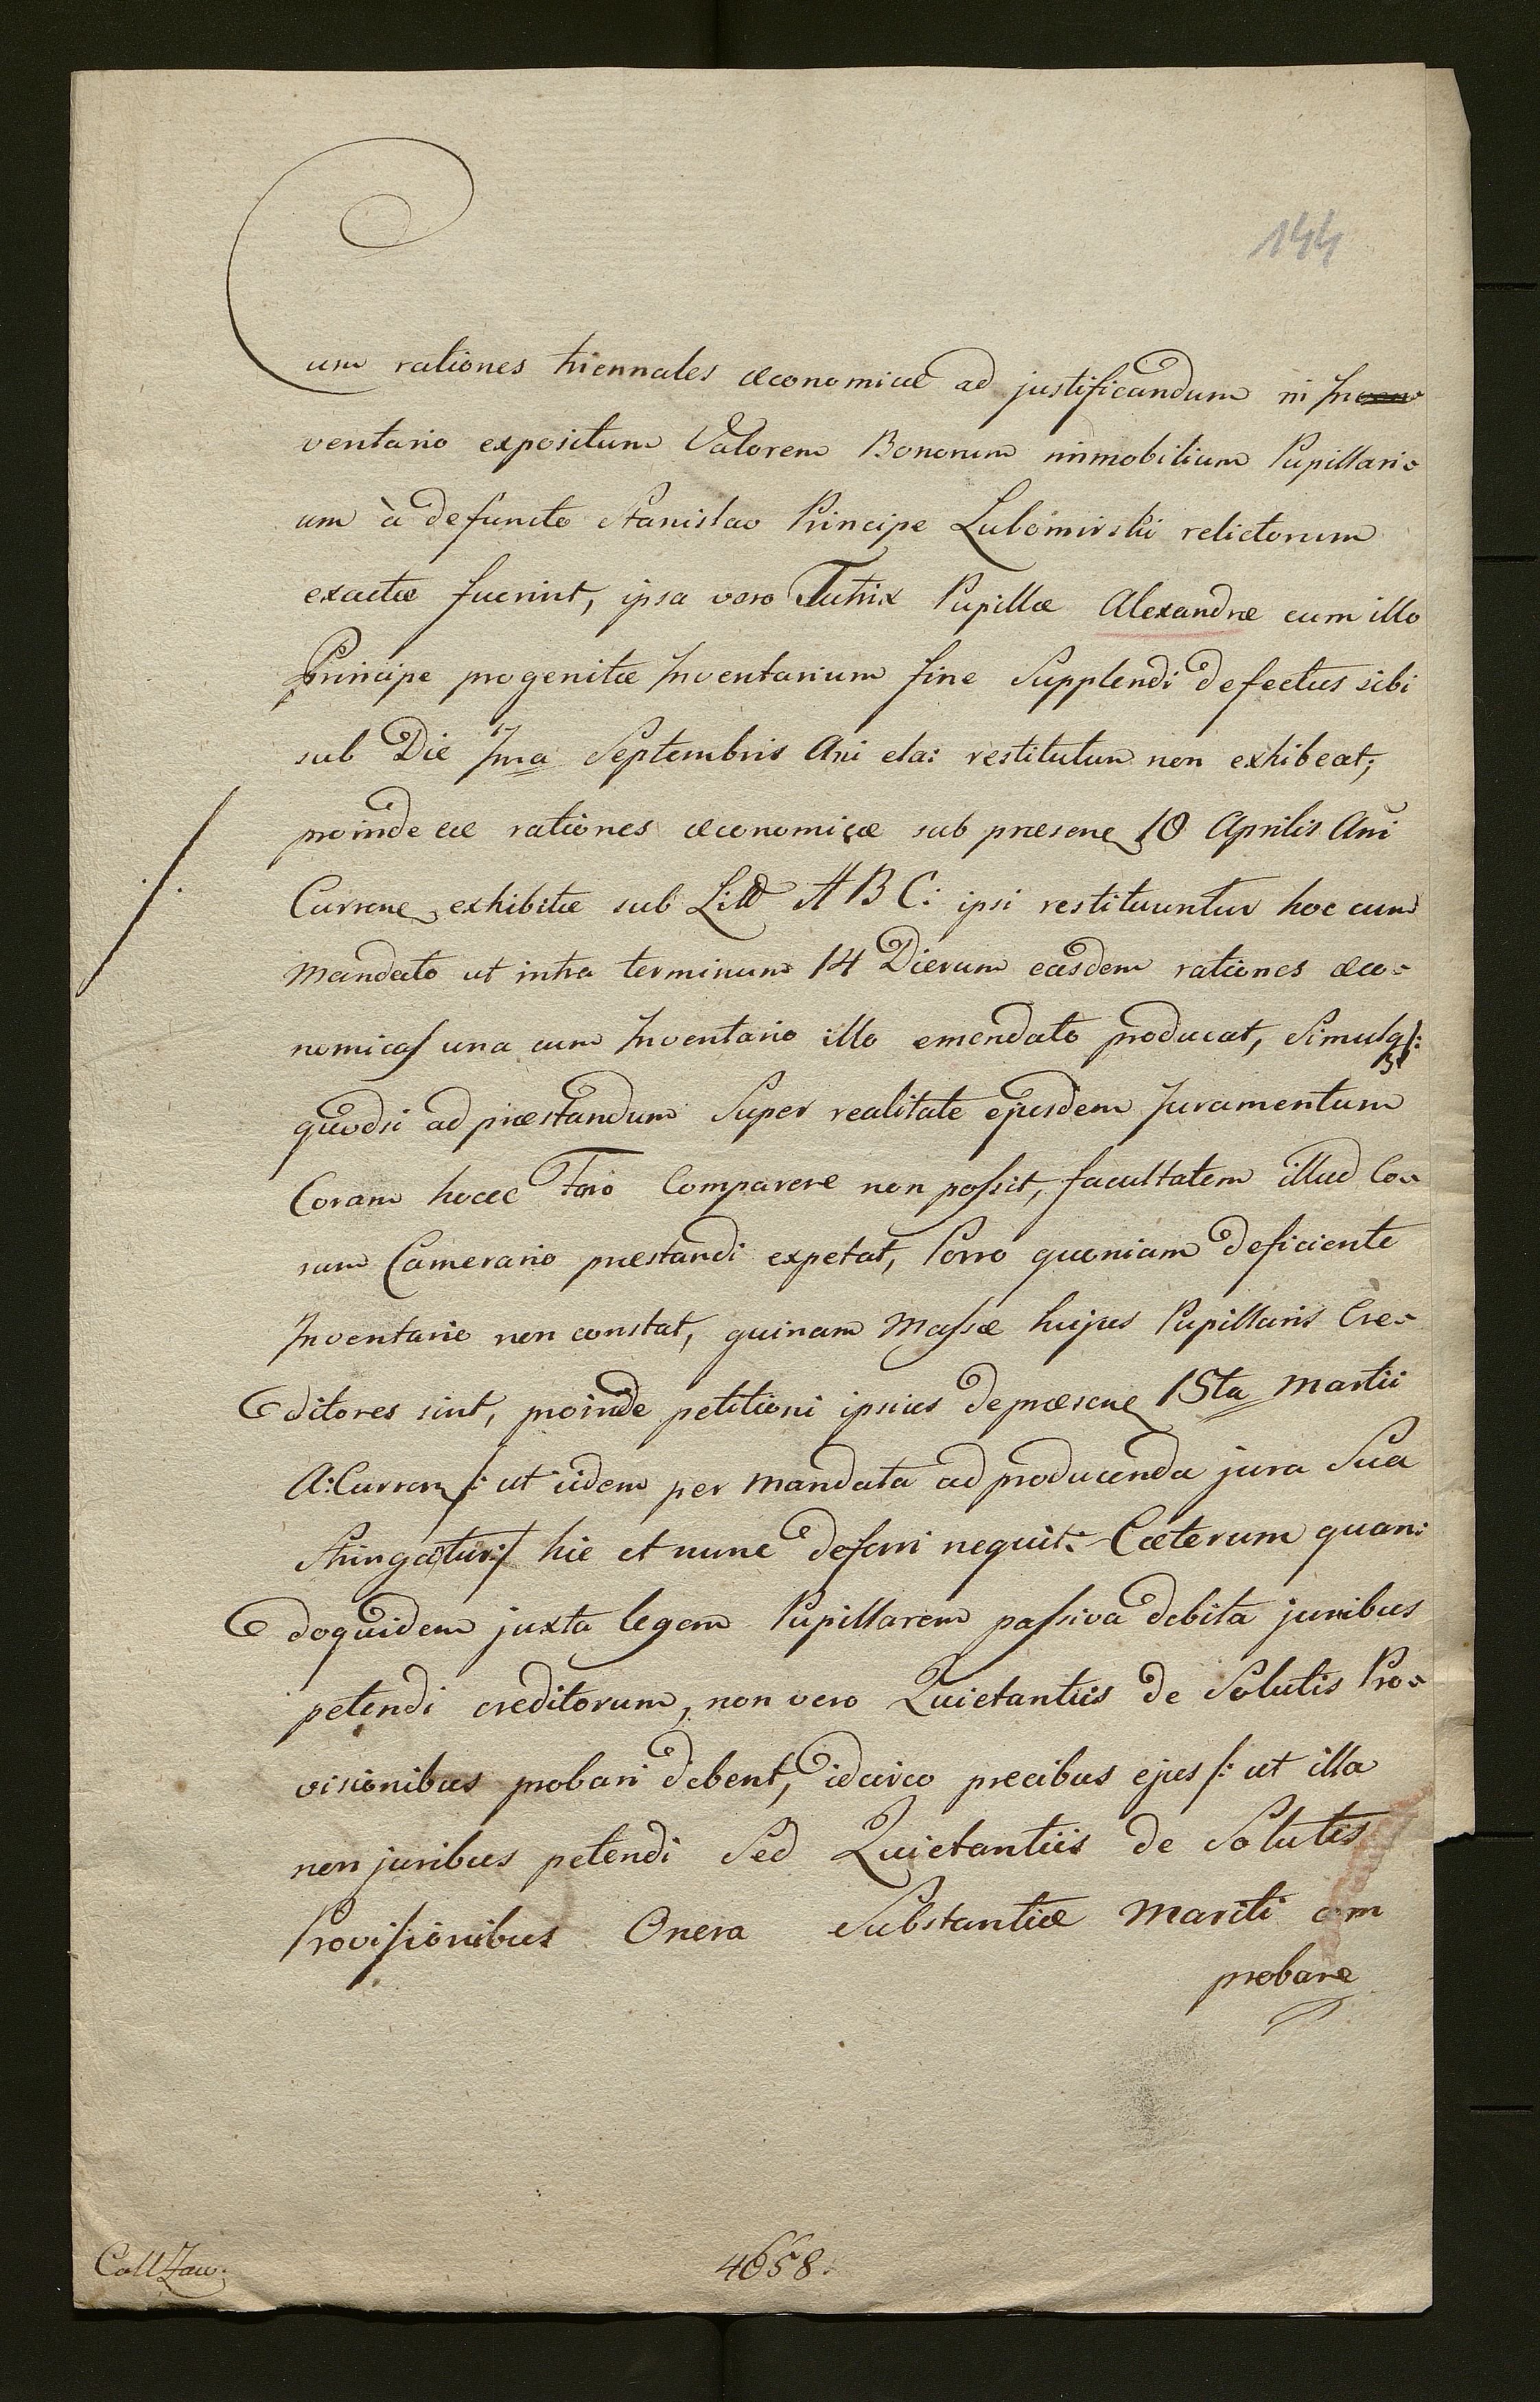 144
Cum rationes triennales œconomicæ ad justificandum in In
ventario expositum Valorem Bonorum immobilium Pupillari-
um à defuncto Stanislao Principe Lubomirski relictorum
exactæ fuerint, ipsa vero Tutrix Pupillæ Alexandræ cum illo
Principe progenitæ Inventarium fine Supplendi defectus sibi
sub Die 1ma Septembris Ani ela: restitutum non exhibeat;
proinde eæ rationes œconomicæ sub præsene 18 Aprilis Ani
Currene exhibitæ sub Litt A B C: ipsi restituuntur hoc cum
Mandato ut intra terminum 14 Dierum easdem rationes œco-
nomicas una cum Inventario illo emendato producat, Simulq:
quodsi ad præstandum Super realitate ejusdem Juramentum
Coram hocce Foro Comparere non possit, facultatem illud Co-
ram Camerario præstandi expetat, Porro quoniam deficiente
Inventario non constat, quinam Massæ hujus Pupillaris Cre-
ditores sint, proinde petitioni ipsius de præsene 15ta Martii
A: Curren /: ut iidem per Mandata ad producenda jura Sua
Stringatur :/ hic et nunc deferri nequit. Cæterum quan:
doquidem juxta legem Pupillarem passiva debita juribus
petendi creditorum, non vero Quietantiis de Solutis Pro-
visionibus probari debent, idcirco precibus ejus /: ut illa
non juribus petendi Sed Quietantiis de Solutis
Provisionibus Onera Substantiæ Mariti
probare
4658.